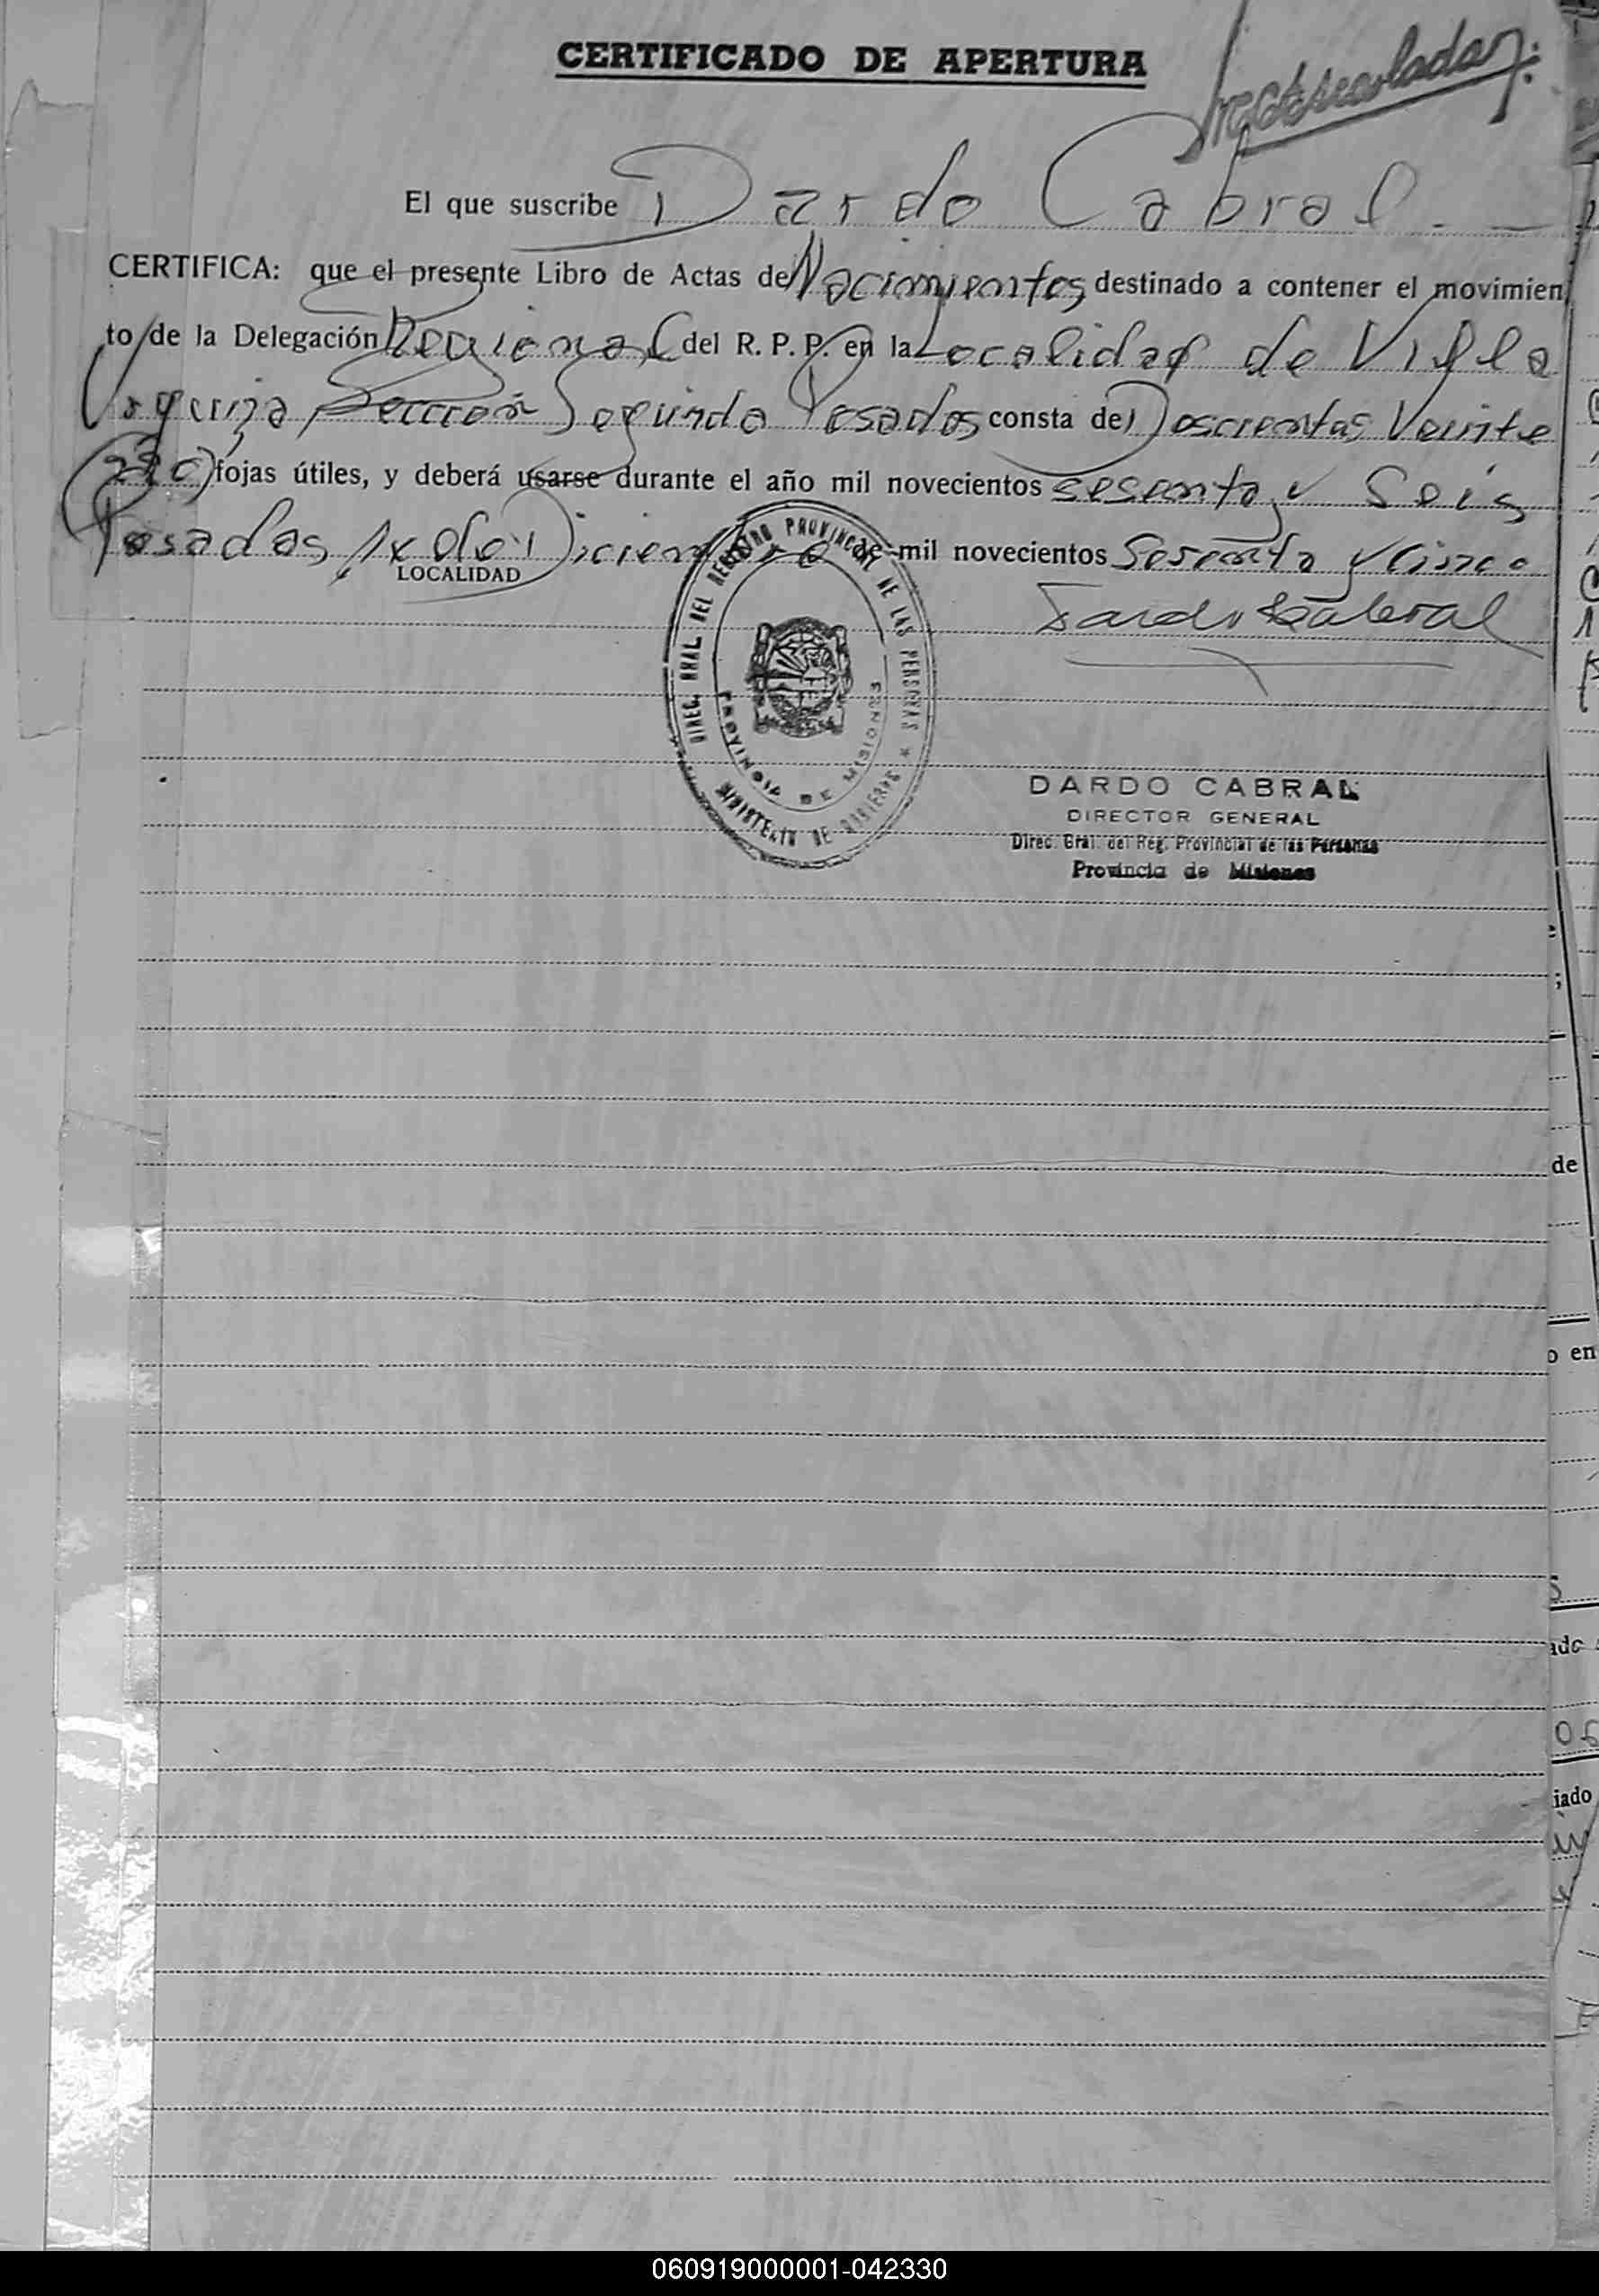 CERTIFICADO DE APERTURA
El que suscribe Dardo Cabral
CERTIFICA: que el presente Libro de Actas de Nacimientos destinado a contener el movimien
to de la Delegación Regional del R. P. P. en la Localidad de Villa
Urquiza Sección Segunda Posadas consta de Doscientas Veinte
(220) fojas útiles, y deberá usarse durante el año mil novecientos sesenta y Seis
Posadas, de Diciembre de mil novecientos Sesenta y cinco
LOCALIDAD
Dardo Cabral
DIREC. GRAL DEL REGISTRO PROVINCIAL DE LAS PERSONAS
PROVINCIA DE MISIONES
MINISTERIO DE GOBIERNO
DARDO CABRAL
DIRECTOR GENERAL
Direc. Gral. del Reg. Provincial de las Personas
Provincia de Misiones
de
o en
ado
iado
060919000001-042330